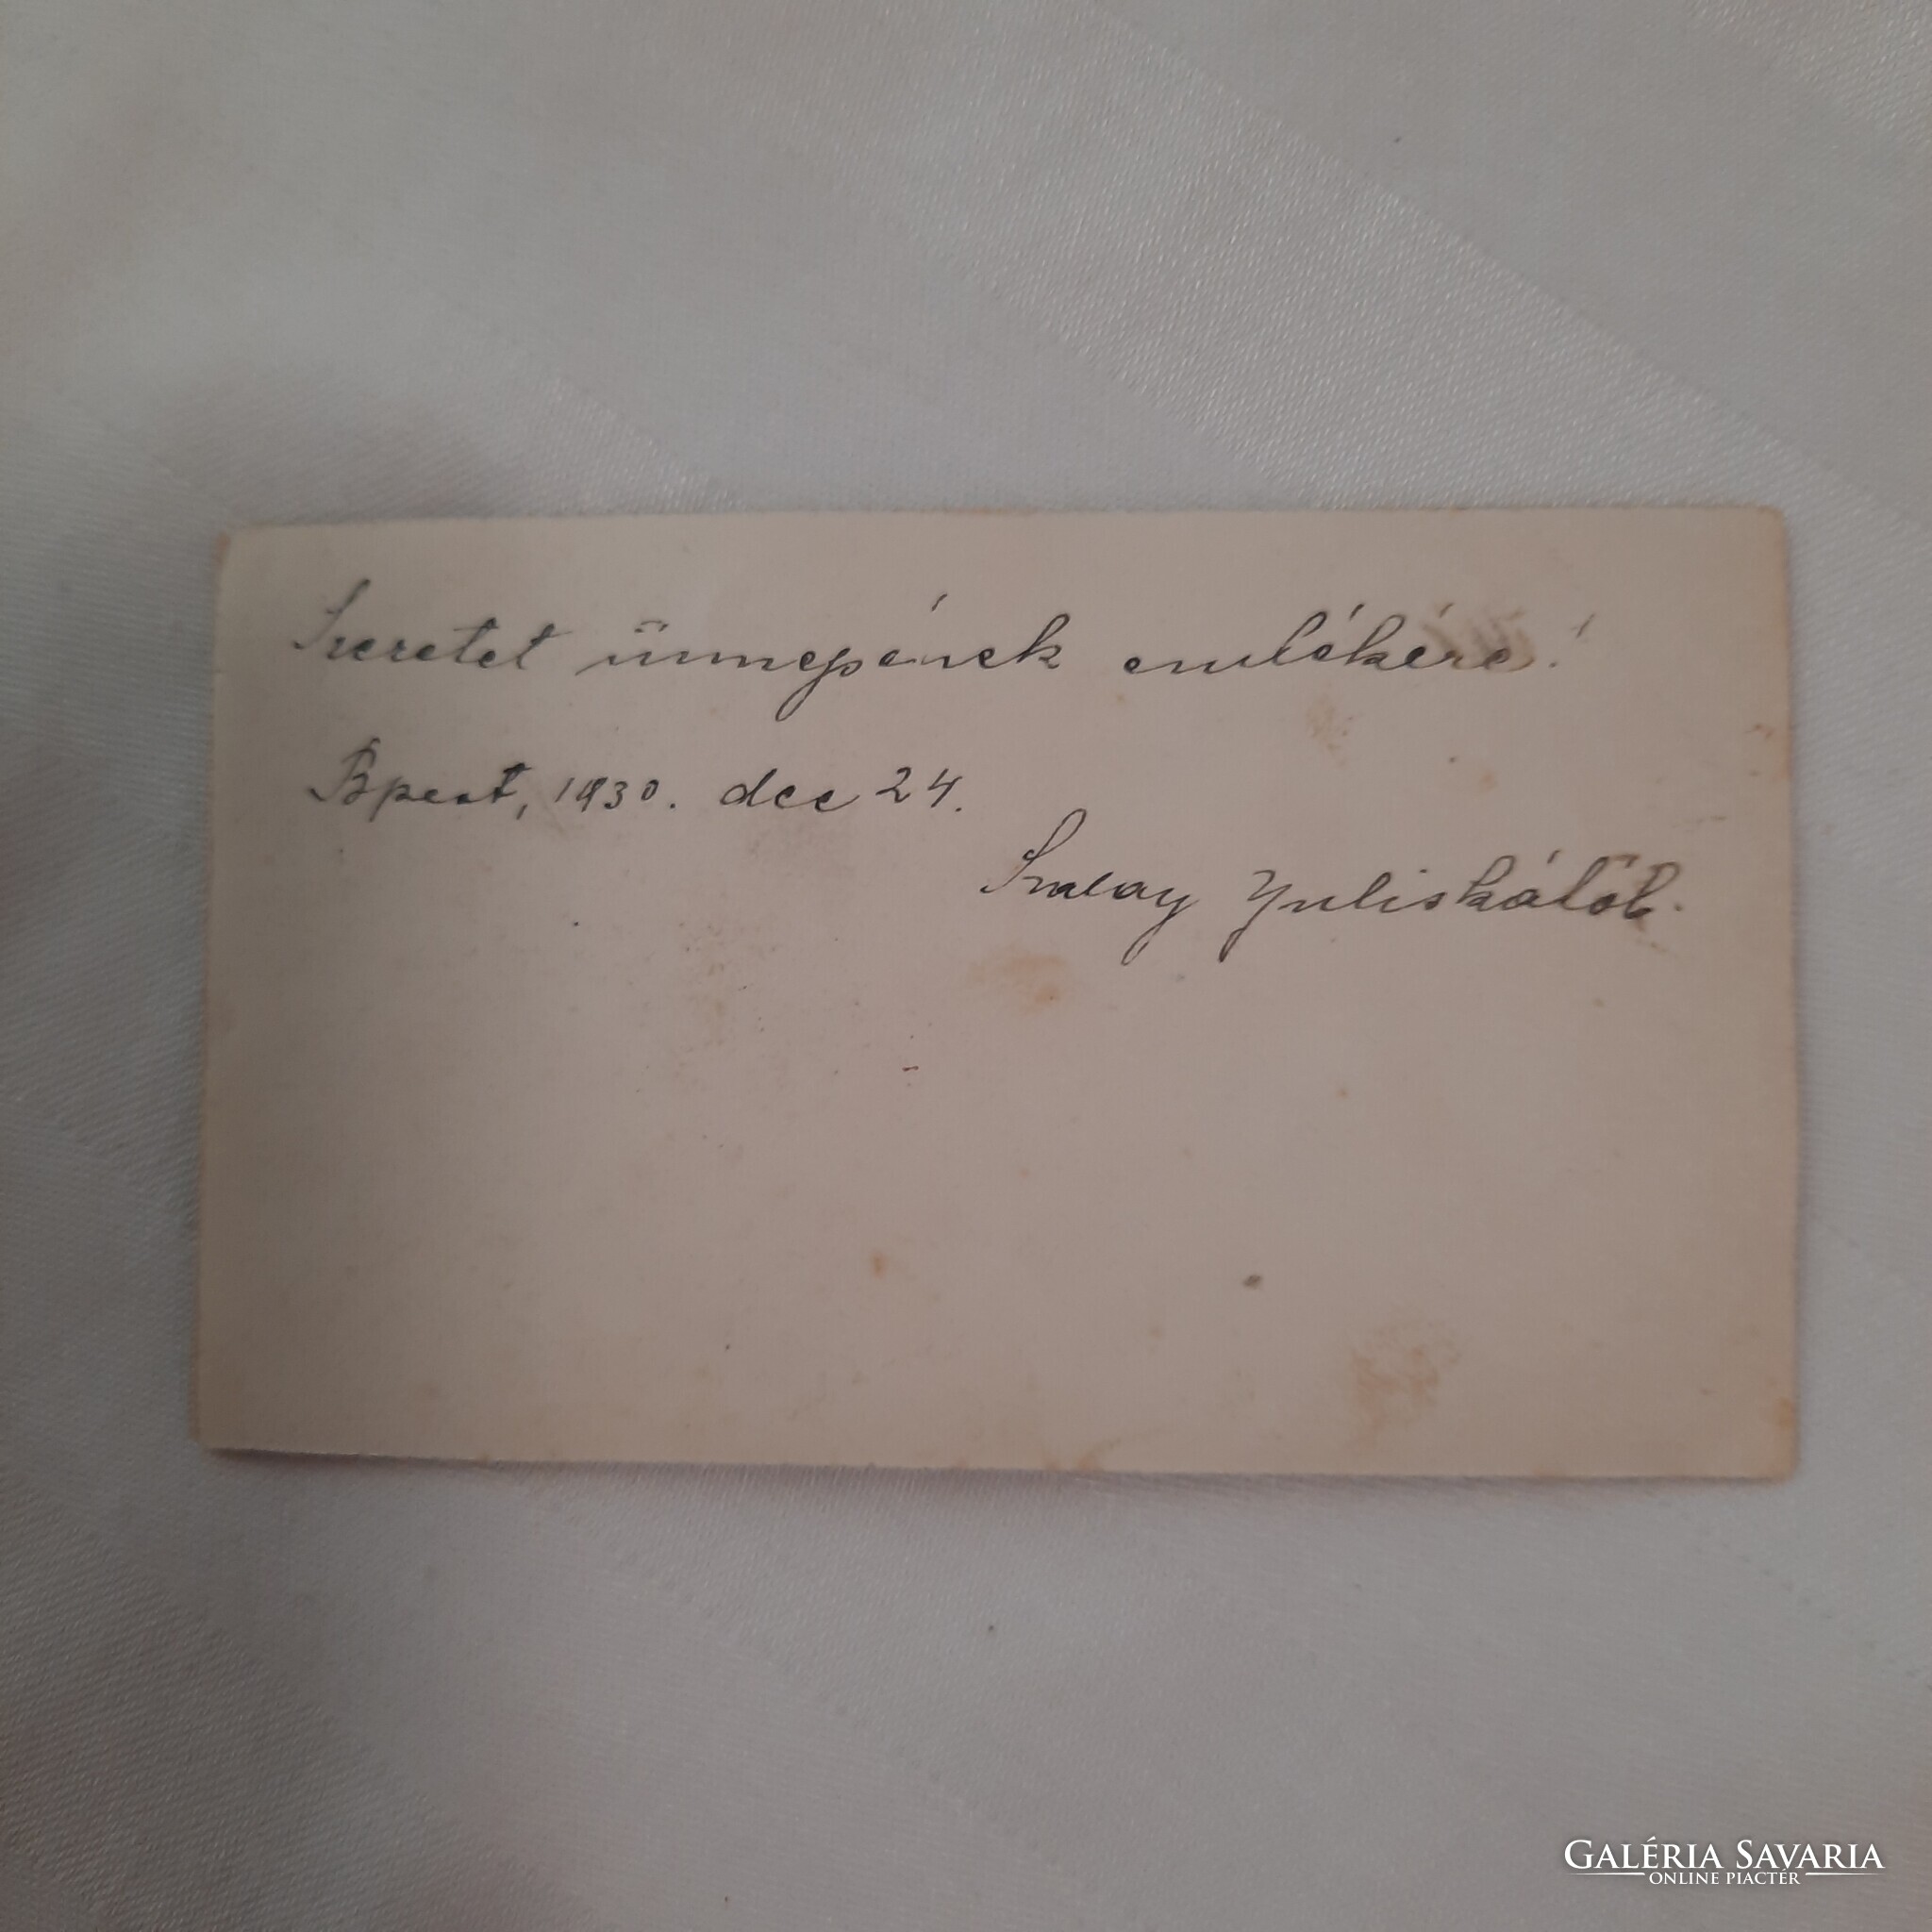 Szeretet ünnepének emlékére!
Bpest, 1930. dec 24.
Szalay Juliskától.
GALÉRIA SAVARIA
ONLINE PIACTÉR